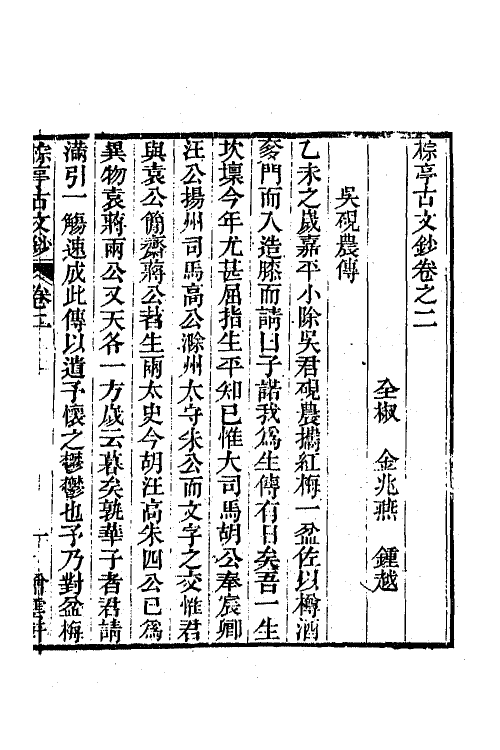 棕亭古文鈔卷之二
全椒　金兆燕　鍾越
吳硯農傳
乙未之歲嘉平小除吳君硯農攜紅梅一盆佐以樽酒
奓門而入造膝而請曰子諾我為生傳有日矣吾一生
坎壈今年尤甚屈指生平知已惟大司馬胡公奉宸卿
汪公揚州司馬高公滁州太守朱公而文字之交惟君
與袁公簡齋蔣公苕生兩太史今胡汪高朱四公已為
異物袁蔣兩公又天各一方歲云暮矣孰華予者君請
滿引一觴速成此傳以遣予懷之鬱鬱也予乃對盆梅
棕亭古文鈔　卷二　一　贈雲軒